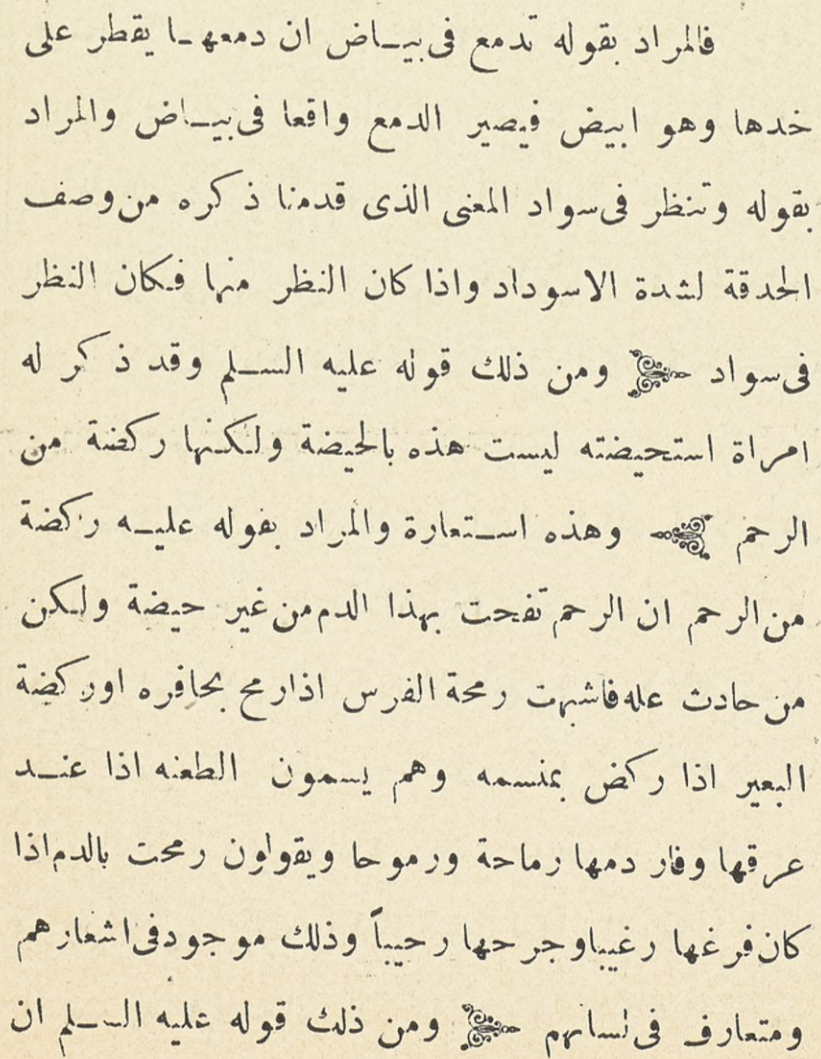 فالمراد بقوله تدمع فى بيـاض ان دمعهـا يقطر على
خدها وهو ابيض فيصير الدمع واقعا فى بيـاض والمراد
بقوله وتنظر فى سواد المعنى الذى قدمنا ذكره من وصف
الحدقة لشدة الاسوداد واذا كان النظر منها فكان النظر
فى سواد ومن ذلك قوله عليه السـلم وقد ذكر له
امراة استحيضته ليست هذه بالحيضة ولكنها ركضة من
الرحم وهذه اسـتعارة والمراد بقوله عليـه ركضة
من الرحم ان الرحم تفحت بهذا الدم من غير حيضة ولكن
من حادث عله فاشبهت رمحة الفرس اذا رمح بحافره او ركضة
البعير اذا ركض بمنسمه وهم يسمون الطعنه اذا عنـد
عرقها وفار دمها رماحة ورموحا ويقولون رمحت بالدم اذا
كان فرغها رغيبا وجرحها رحيباً وذلك موجود فى اشعارهم
ومتعارف فى لسانهم ومن ذلك قوله عليه السـلم ان